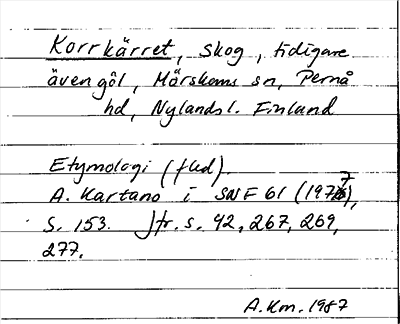 Korrkärret, skog, tidigare
även göl, Märskoms sn, Pernå
hd, Nylands l. Finland
Etymologi (fled).
A. Kartano i SNF 61 (1977),
S. 153. Jfr. s. 42, 267, 269,
277.
A.Km. 1987